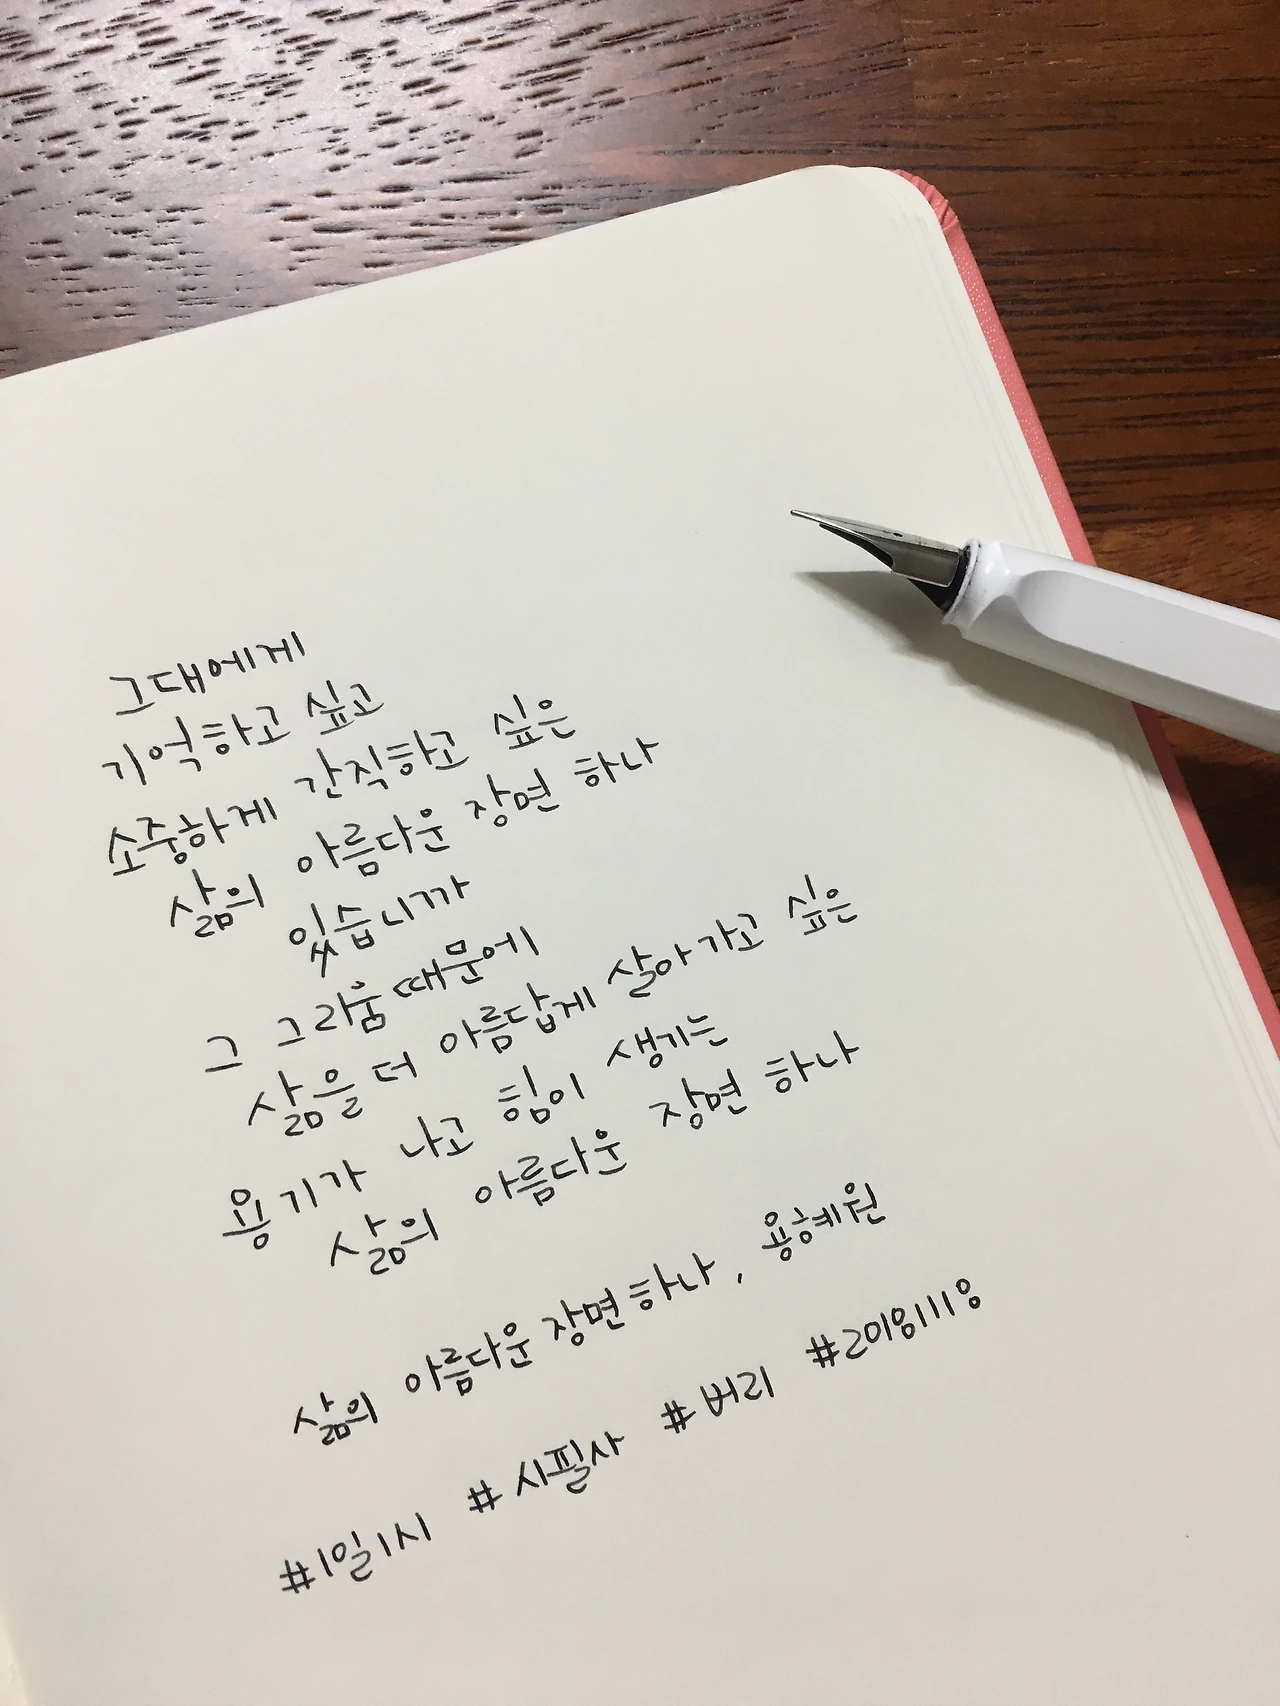 그대에게
기억하고 싶고
소중하게 간직하고 싶은
삶의 아름다운 장면 하나
있습니까
그 그리움 때문에
삶을 더 아름답게 살아가고 싶은
용기가 나고 힘이 생기는
삶의 아름다운 장면 하나
삶의 아름다운 장면 하나, 용혜원
#1일1시 #시필사 #버리 #20181118